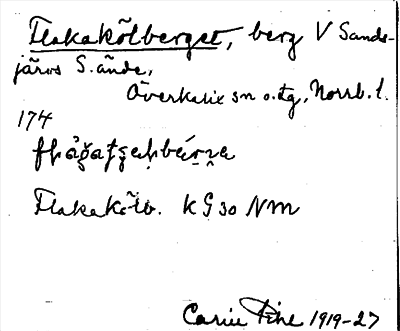 Flakakölberget, berg V Sands-
järvs S. ände,
Överkalix sn o. tg, Norrb. l.
174
Flakakölb. K G 30 NM
Carin Pihl 1919-27